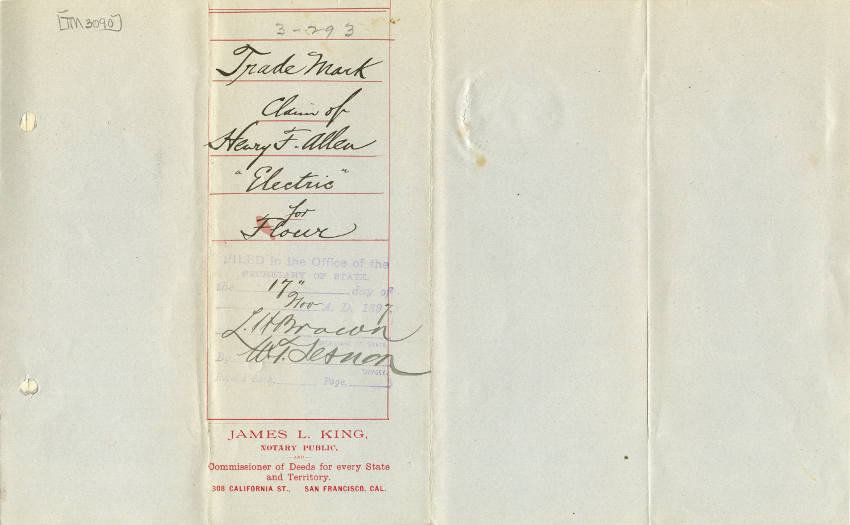 [TM3090]
3-293
Trade Mark
Claim of
Henry F. Allen
"Electric"
for
Flour
FILED in the Office of the
SECRETARY OF STATE,
the 17" day of
Nov A. D. 1897.
L. H. Brown
SECRETARY OF STATE
By W. T.
DEPUTY.
Record Book, Page,
JAMES L. KING,
NOTARY PUBLIC,
—AND—
Commissioner of Deeds for every State
and Territory.
308 CALIFORNIA ST., SAN FRANCISCO, CAL.